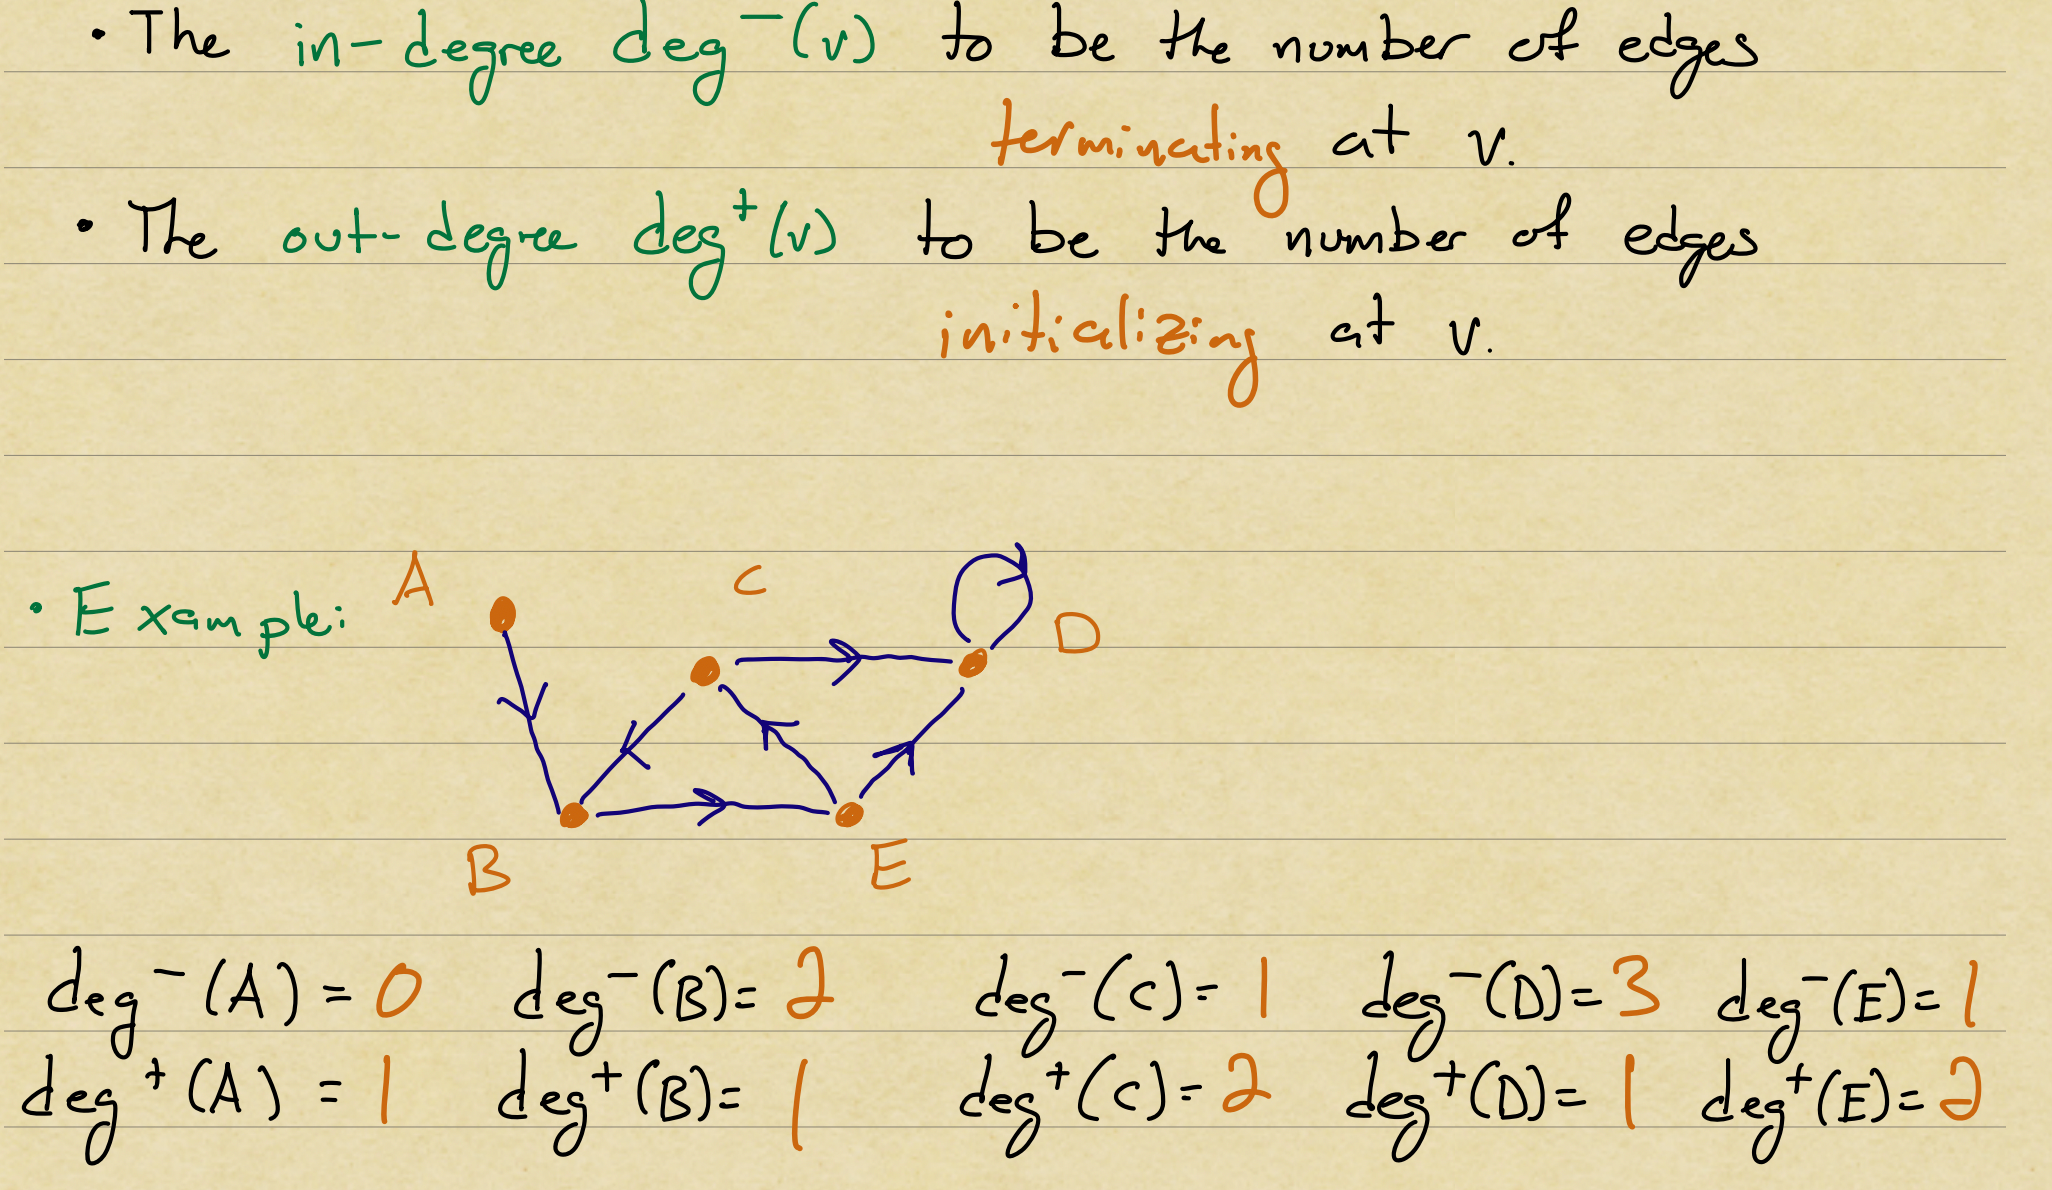 • The in-degree deg⁻(v) to be the number of edges
terminating at v.
• The out-degree deg⁺(v) to be the number of edges
initializing at v.
• Example:
A
C
D
B
E
deg⁻(A) = 0 deg⁻(B)= 2 deg⁻(C)= 1 deg⁻(D)= 3 deg⁻(E)= 1
deg⁺(A) = 1 deg⁺(B)= 1 deg⁺(C)= 2 deg⁺(D)= 1 deg⁺(E)= 2